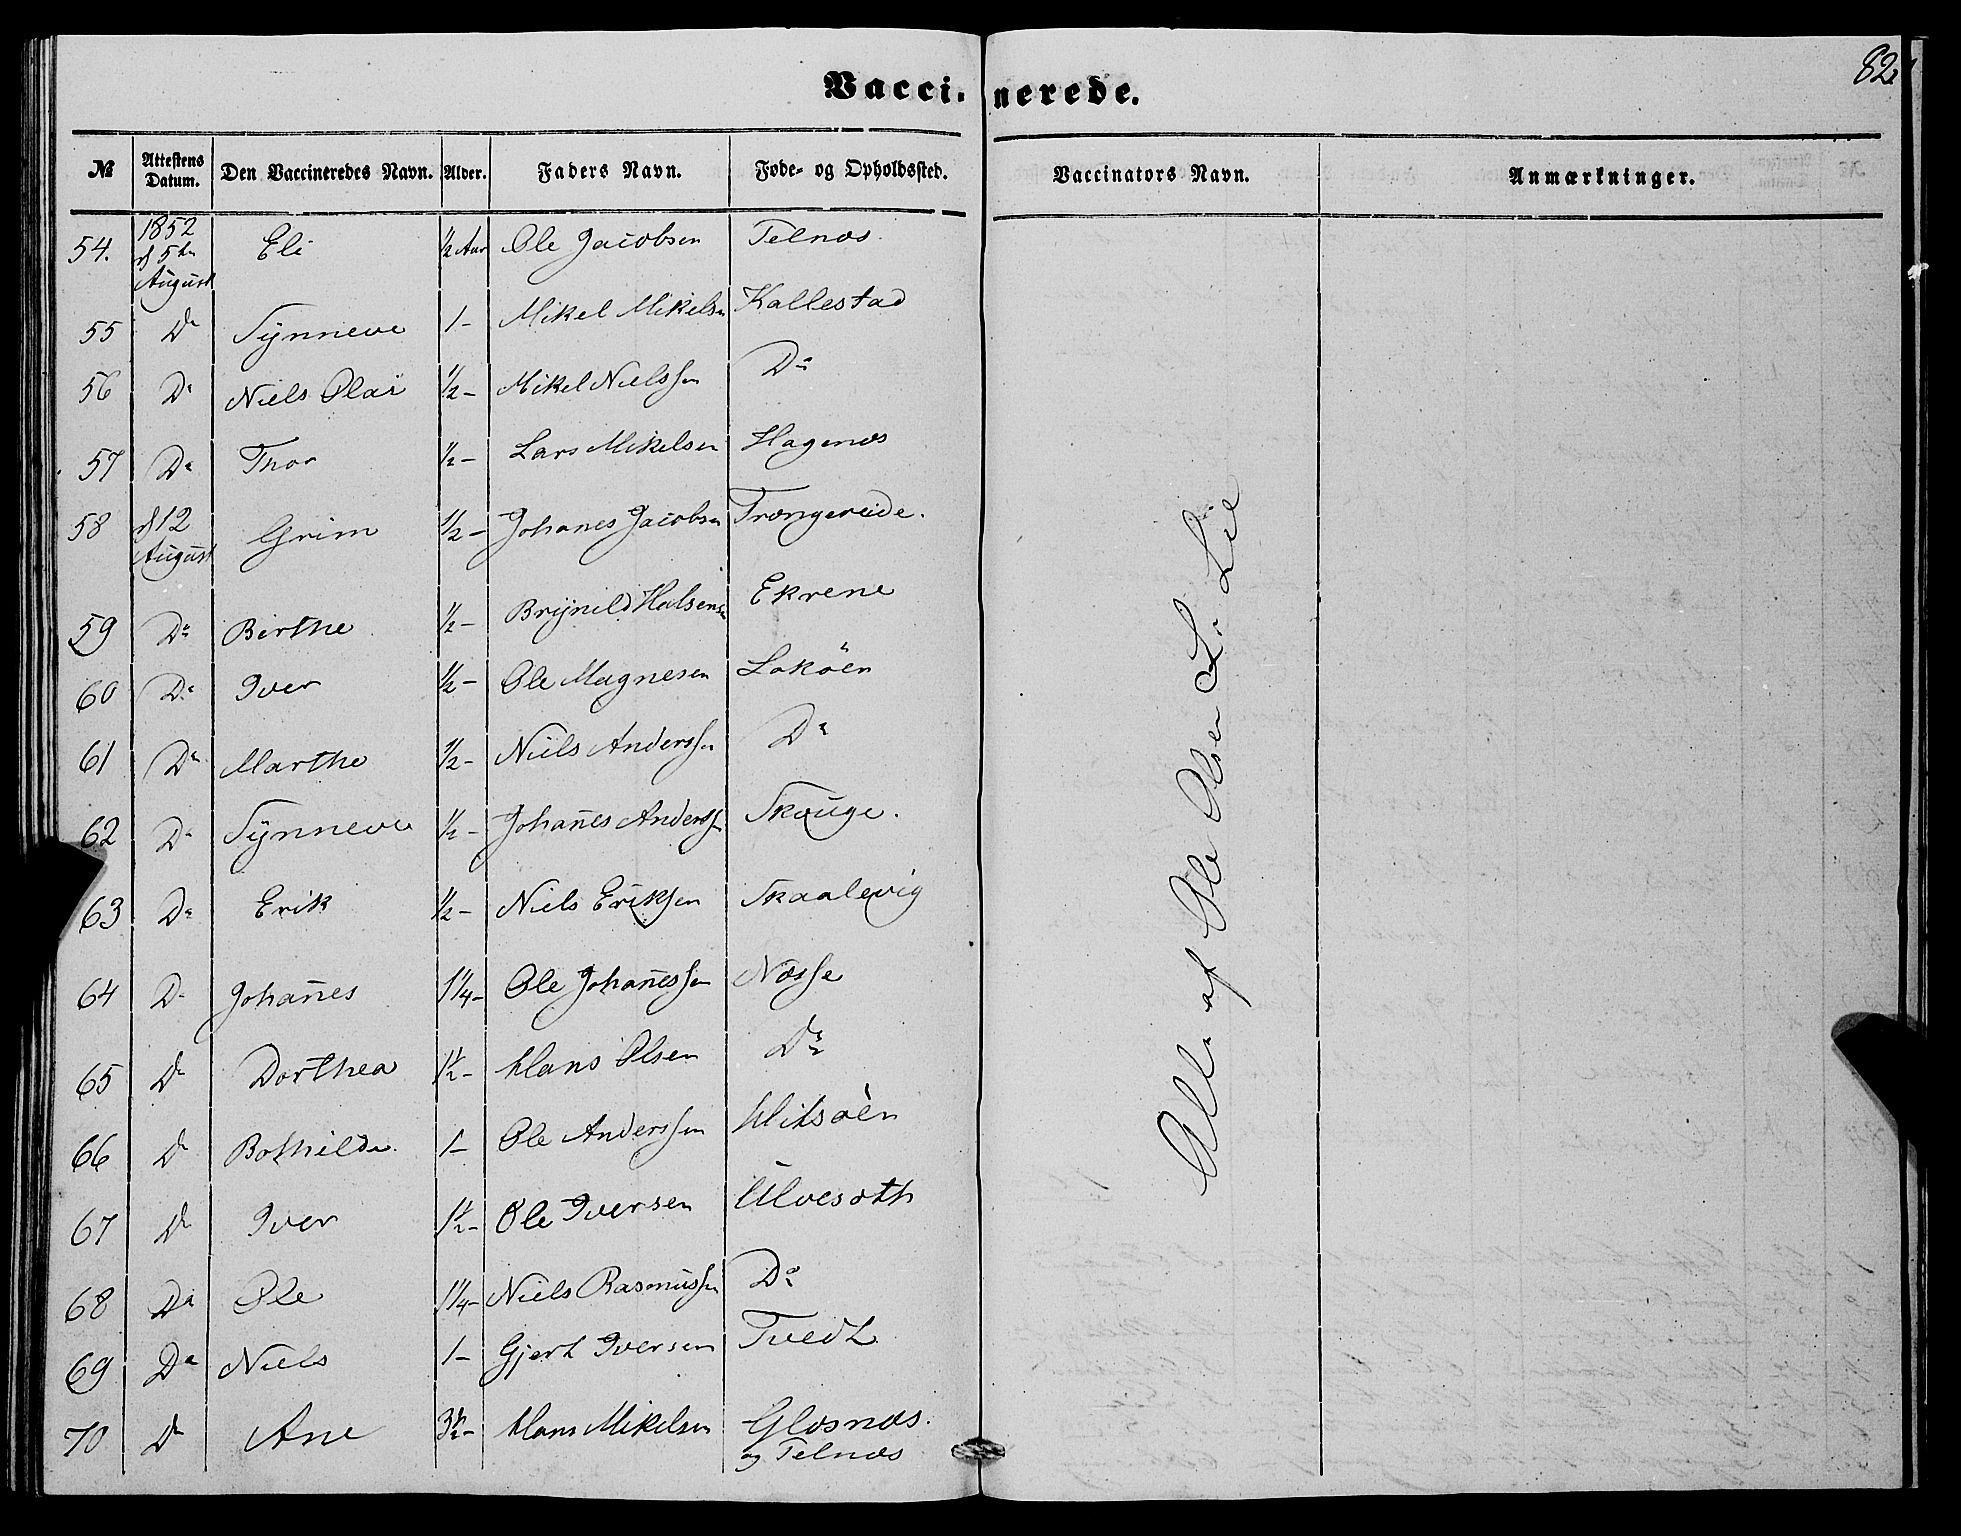 82
Vaccinerede.
№ | Attestens Datum. | Den Vaccineredes Navn. | Alder. | Faders Navn. | Føde- og Opholdssted. | Vaccinators Navn. | Anmærkninger.
54. | 1852 d 5te August | Eli | ½ Aar | Ole Jacobsen | Telnæs.
55 | Do | Synneve | 1 - | Mikel Mikelsen | Kallestad
56 | Do | Niels Olai | ½ - | Mikel Nielssen | Do
57 | Do | Thor | ½ - | Lars Mikelsen | Hagenæs
58 | d 12 August | Grim | ½ - | Johanes Jacobsen | Trængereide.
59 | Do | Birthe | ½ - | Brynild Halsensen | Ekrene
60 | Do | Iver | ½ - | Ole Magnesen | Lokøen
61 | Do | Marthe | ½ - | Niels Anderssen | Do
62 | Do | Synneve | ½ - | Johañes Anderssen | Skouge.
63 | Do | Erik | ½ - | Niels Eriksen | Skaalevig
64 | Do | Johañes | 1¼ - | Ole Johañessen | Næsse
65 | Do | Dorthea | 1½ - | Hans Olsen | Do
66 | Do | Bothilda | 1 - | Ole Anderssen | Hitsøen
67 | Do | Iver | 1½ - | Ole Iversen | Ulvesæth
68 | Do | Ole | 1¼ - | Niels Rasmussen | Do
69 | Do | Niels | 1 - | Gjert Iversen | Tvedt
70 | Do | Ane | 3½ - | Hans Mikelsen | Glæsnæs. og Telnæs
Alle af Ole Olsen L: Lie